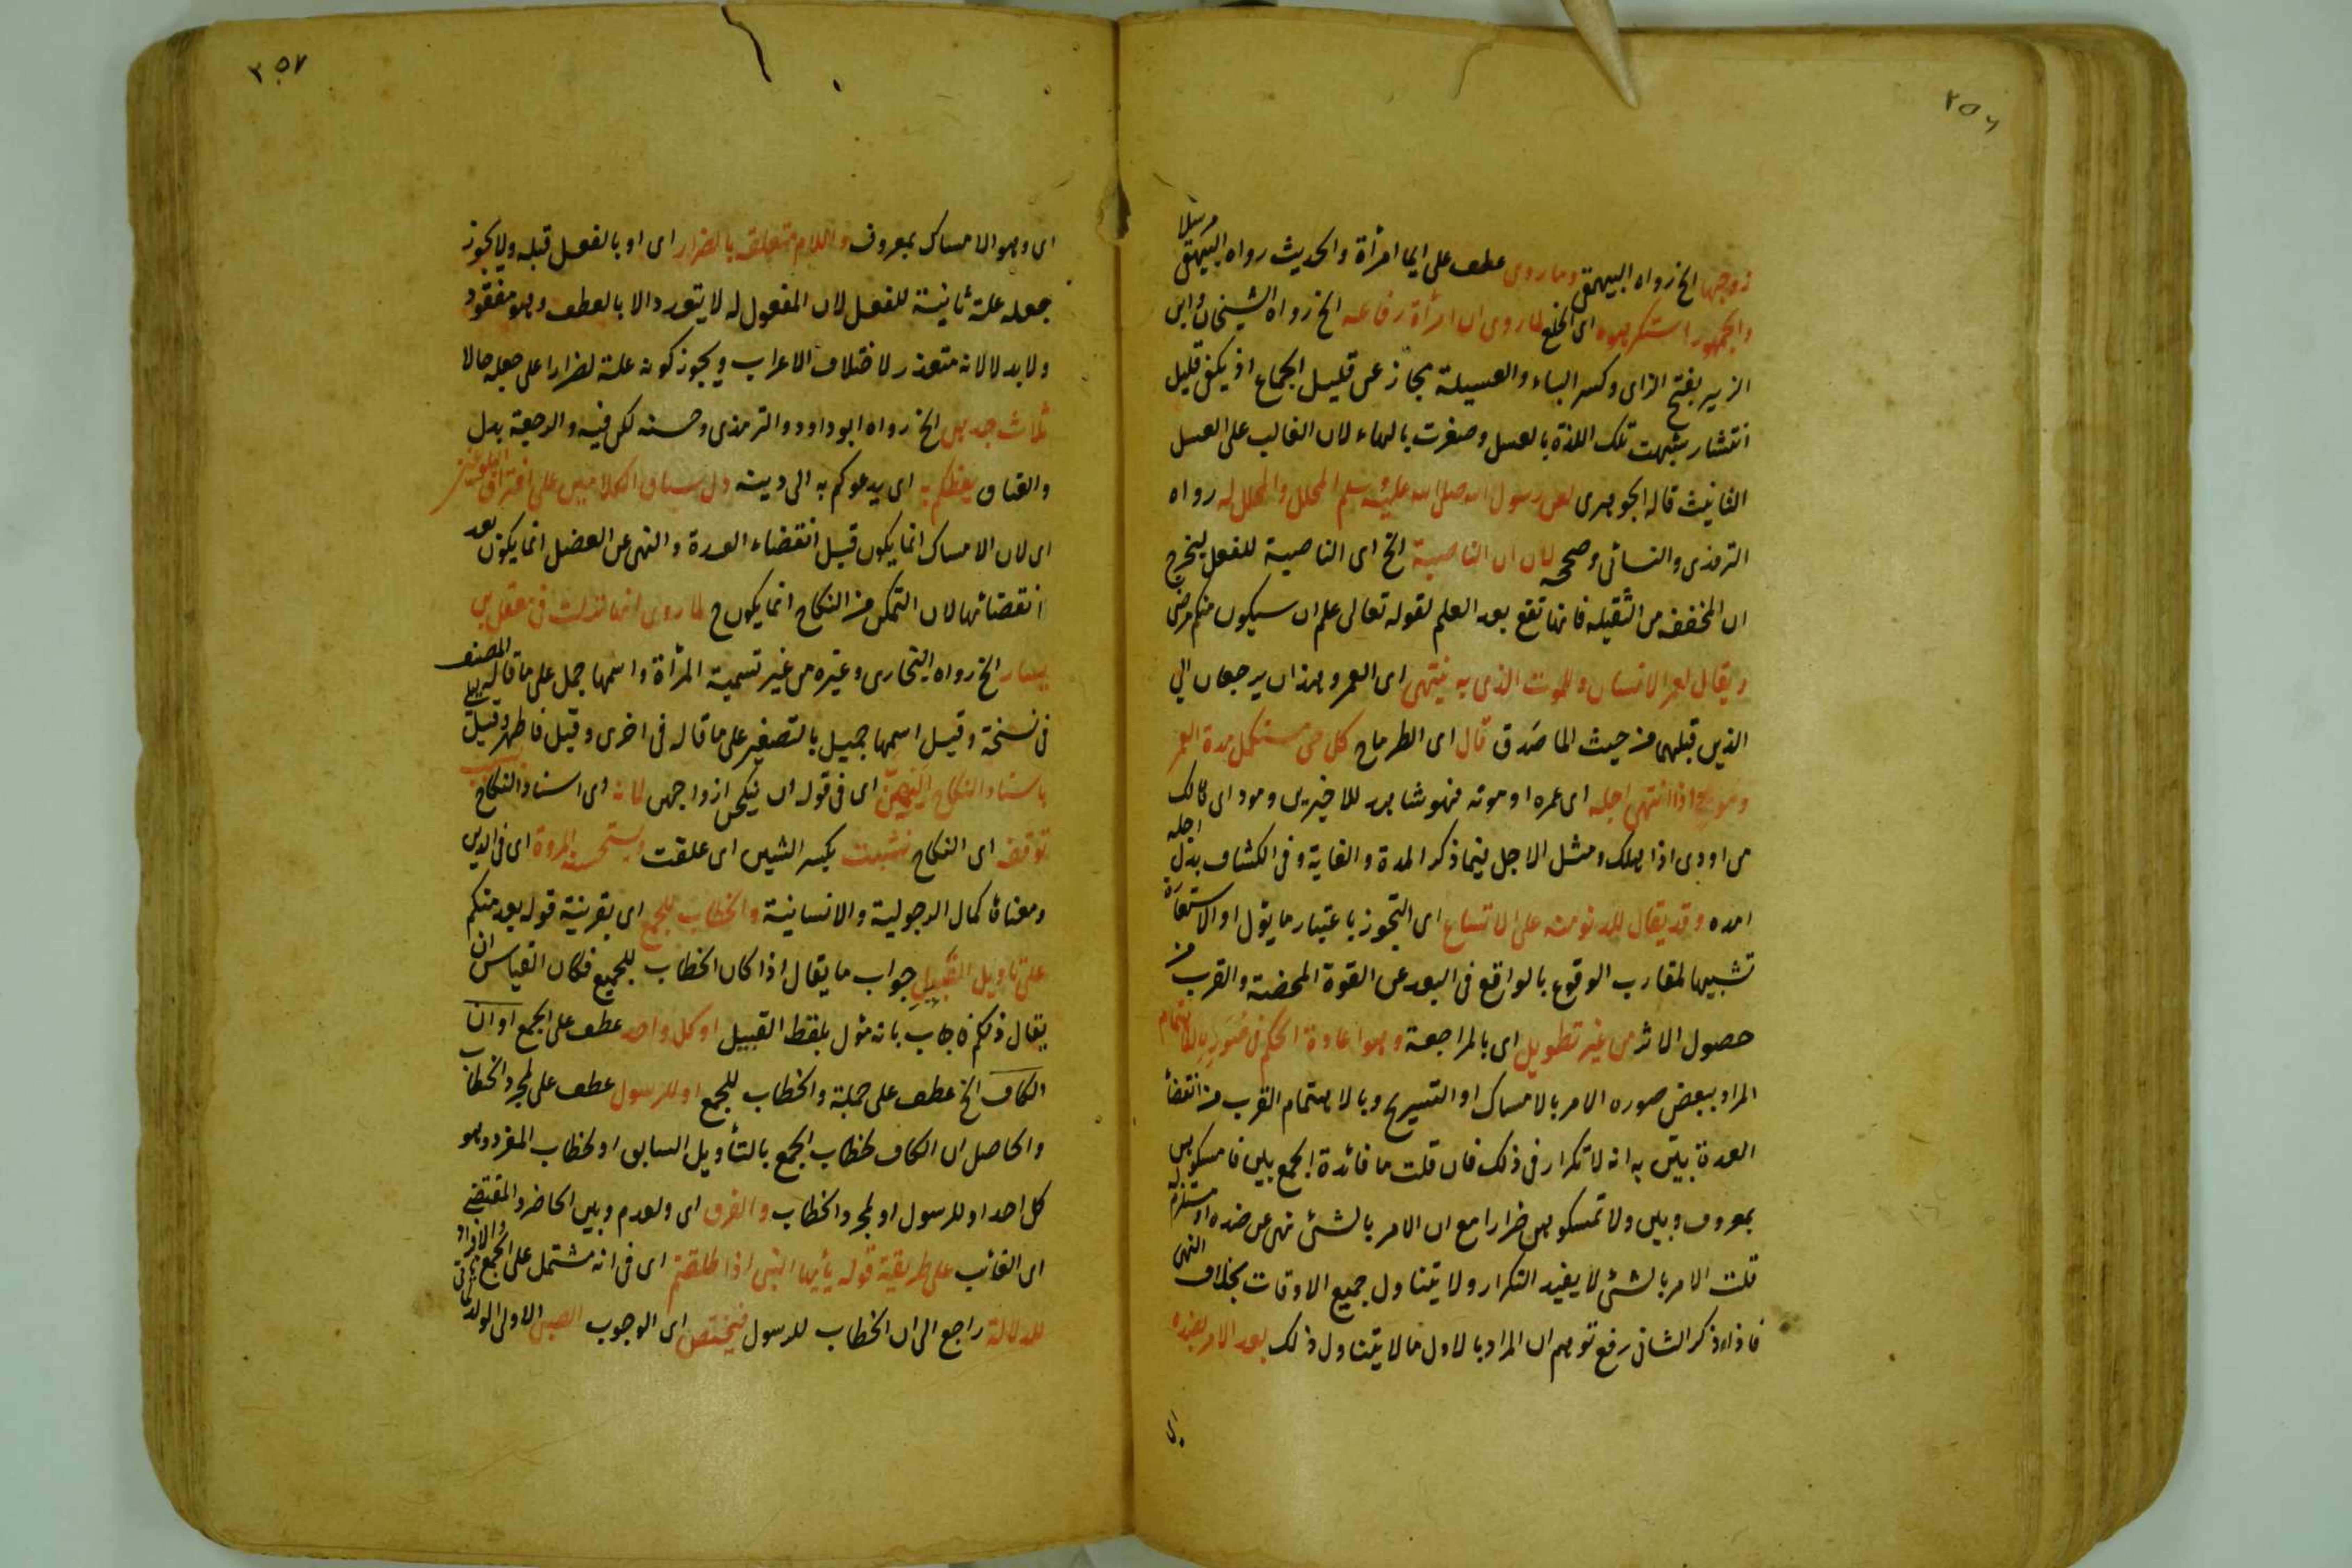 ٢٥٦
زوجها الخ رواه البيهقي وما روى عطف على ايما امرأة والحديث رواه البيهقي مرسلا
والجمهور استكرهوه اى الخلع لما روى ان امرأة رفاعه الخ رواه الشيخان وابن
الزبير بفتح الزاى وكسر الباء والعسيلة مجاز عن قليل الجماع اذ يكفى قليل
انتشار شبهت تلك اللذة بالعسل وصغرت بالهاء لان الغالب على العسل
التانيث قاله الجوهرى لعن رسول الله صلى الله عليه وسلم المحلل والمحلل له رواه
الترمذى والنسائى وصححه لان ان الناصبة الخ اى الناصبة للفعل ليخرج
ان المخففه من الثقيله فانها تقع بعد العلم لقوله تعالى علم ان سيكون منكم مرضى
ويقال لعمر الانسان وللموت الذى به ينتهى اى العمر وهذان يرجعان الى
الذين قبلهما من حيث الماصدق قال اى الطرماح كل حى مستكمل مدة العمر
ومود اذا انتهى اجله اى عمره او موته فهو شاهد للاخيرين ومود اى هالك
من اودى اذا هلك ومثل الاجل فيما ذكر المدة والغاية وفى الكشاف بدل اجله
امده وقد يقال للدنو منه على الاتساع اى التجوز باعتبار ما يؤل او الاستعارة
تشبيها لمقارب الوقوع بالواقع فى البعد عن القوة المحضة والقرب من
حصول الاثر من غير تطويل اى بالمراجعة وهو اعادة الحكم فى صوره للاهتمام
المراد ببعض صوره الامر بالامساك او التسريح وبالاهتمام القرب من انقضاء
العدة بين به انه لا تكرار فى ذلك فان قلت ما فائدة الجمع بين فامسكوهن
بمعروف وبين ولا تمسكوهن ضرارا مع ان الامر بالشئ نهى عن ضده او مستلزم له
قلت الامر بالشئ لا يفيد التكرار ولا يتناول جميع الاوقات بخلاف النهى
فاذا ذكر الثانى رفع توهم ان المراد بالاول ما لا يتناول ذلك بعد الامر بضده
اى
٢٥٧
اى وهو الامساك بمعروف واللام متعلقة بالضرار اى او بالفعل قبله ولا يجوز
جعله علة ثانية للفعل لان المفعول له لا يتعدد الا بالعطف وهو مفقود
ولا بدلا لانه متعذر لاختلاف الاعراب ويجوز كونه علة لضرارا على جعله حالا
ثلاث جدهن الخ رواه ابو داود والترمذى وحسنه لكن فيه والرجعة بدل
والعتاق يعظكم به اى يدعوكم به الى دينه دل سياق الكلامين على افتراق البلوغين
اى لان الامساك انما يكون قبيل انقضاء العدة والنهى عن العضل انما يكون بعد
انقضائها لان التمكن من النكاح انما يكون ح لما روى انها نزلت فى معقل بن
يسار الخ رواه البخارى وغيره من غير تسمية المرأة واسمها جمل على ما قاله المصنف
فى نسخة وقيل اسمها جميل بالتصغير على ما قاله فى اخرى وقيل فاطمة وقيل ليلى
باسناد النكاح اليهن اى فى قوله ان ينكحن ازواجهن لانه اى اسناد النكاح بسبب
توقفه اى النكاح نشبت بكسر الشين اى علقت ويستحسنه المروة اى فى الدين
ومعناه كمال الرجولية والانسانية والخطاب للجمع اى بقرينة قوله بعد منكم
على تاويل القبيل جواب ما يقال اذا كان الخطاب للجميع فكان القياس ان
يقال ذلكم فاجاب بانه مؤل بلفظ القبيل او كل واحد عطف على الجمع او ان
الكاف الخ عطف على جملة والخطاب للجمع او للرسول عطف على لمجرد الخطاب
والحاصل ان الكاف لخطاب الجمع بالتأويل السابق او لخطاب المفرد وهو
كل احد او للرسول او لمجرد الخطاب والفرق اى ولعدم وبين الحاضر والمنقضى
اى الغائب على طريقة قوله يأيها النبى اذا طلقتم اى فى انه مشتمل على الجمع والافراد
للدلالة راجع الى ان الخطاب للرسول فيختص اى الوجوب الصبى الاولى الولد